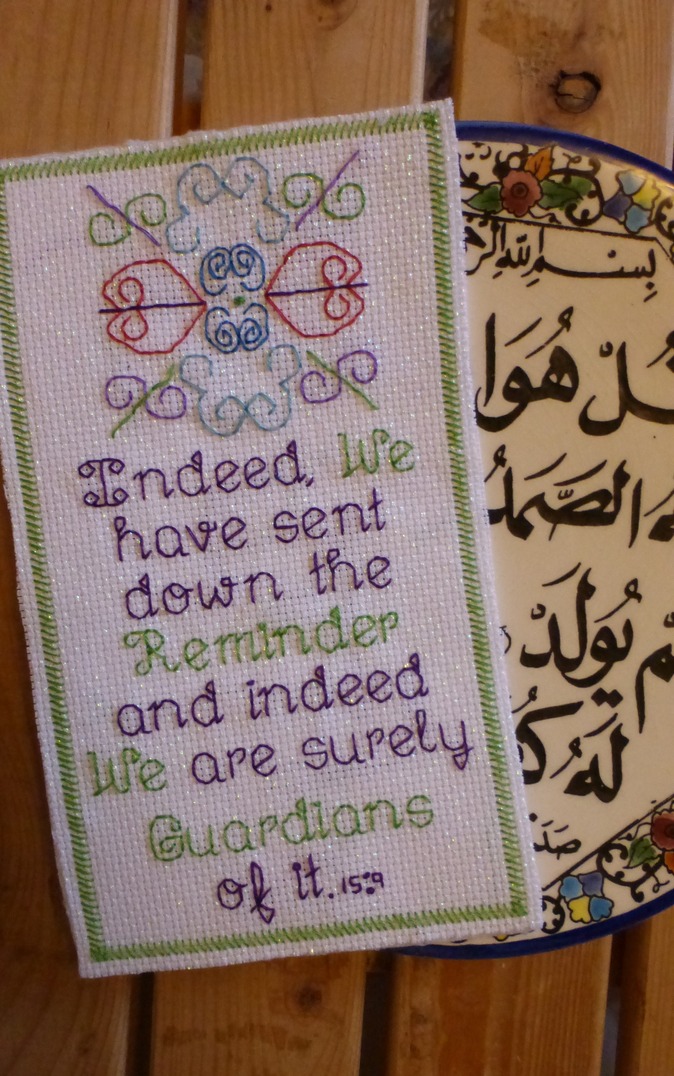 Indeed, We
have sent
down the
Reminder
and indeed
We are surely
Guardians
of it. 15:9
بِسْمِ اللهِ الرح
قُلْ هُوَ ا
الصَّمَدُ
يُولَدْ
لَهُ كُ
صَدَ